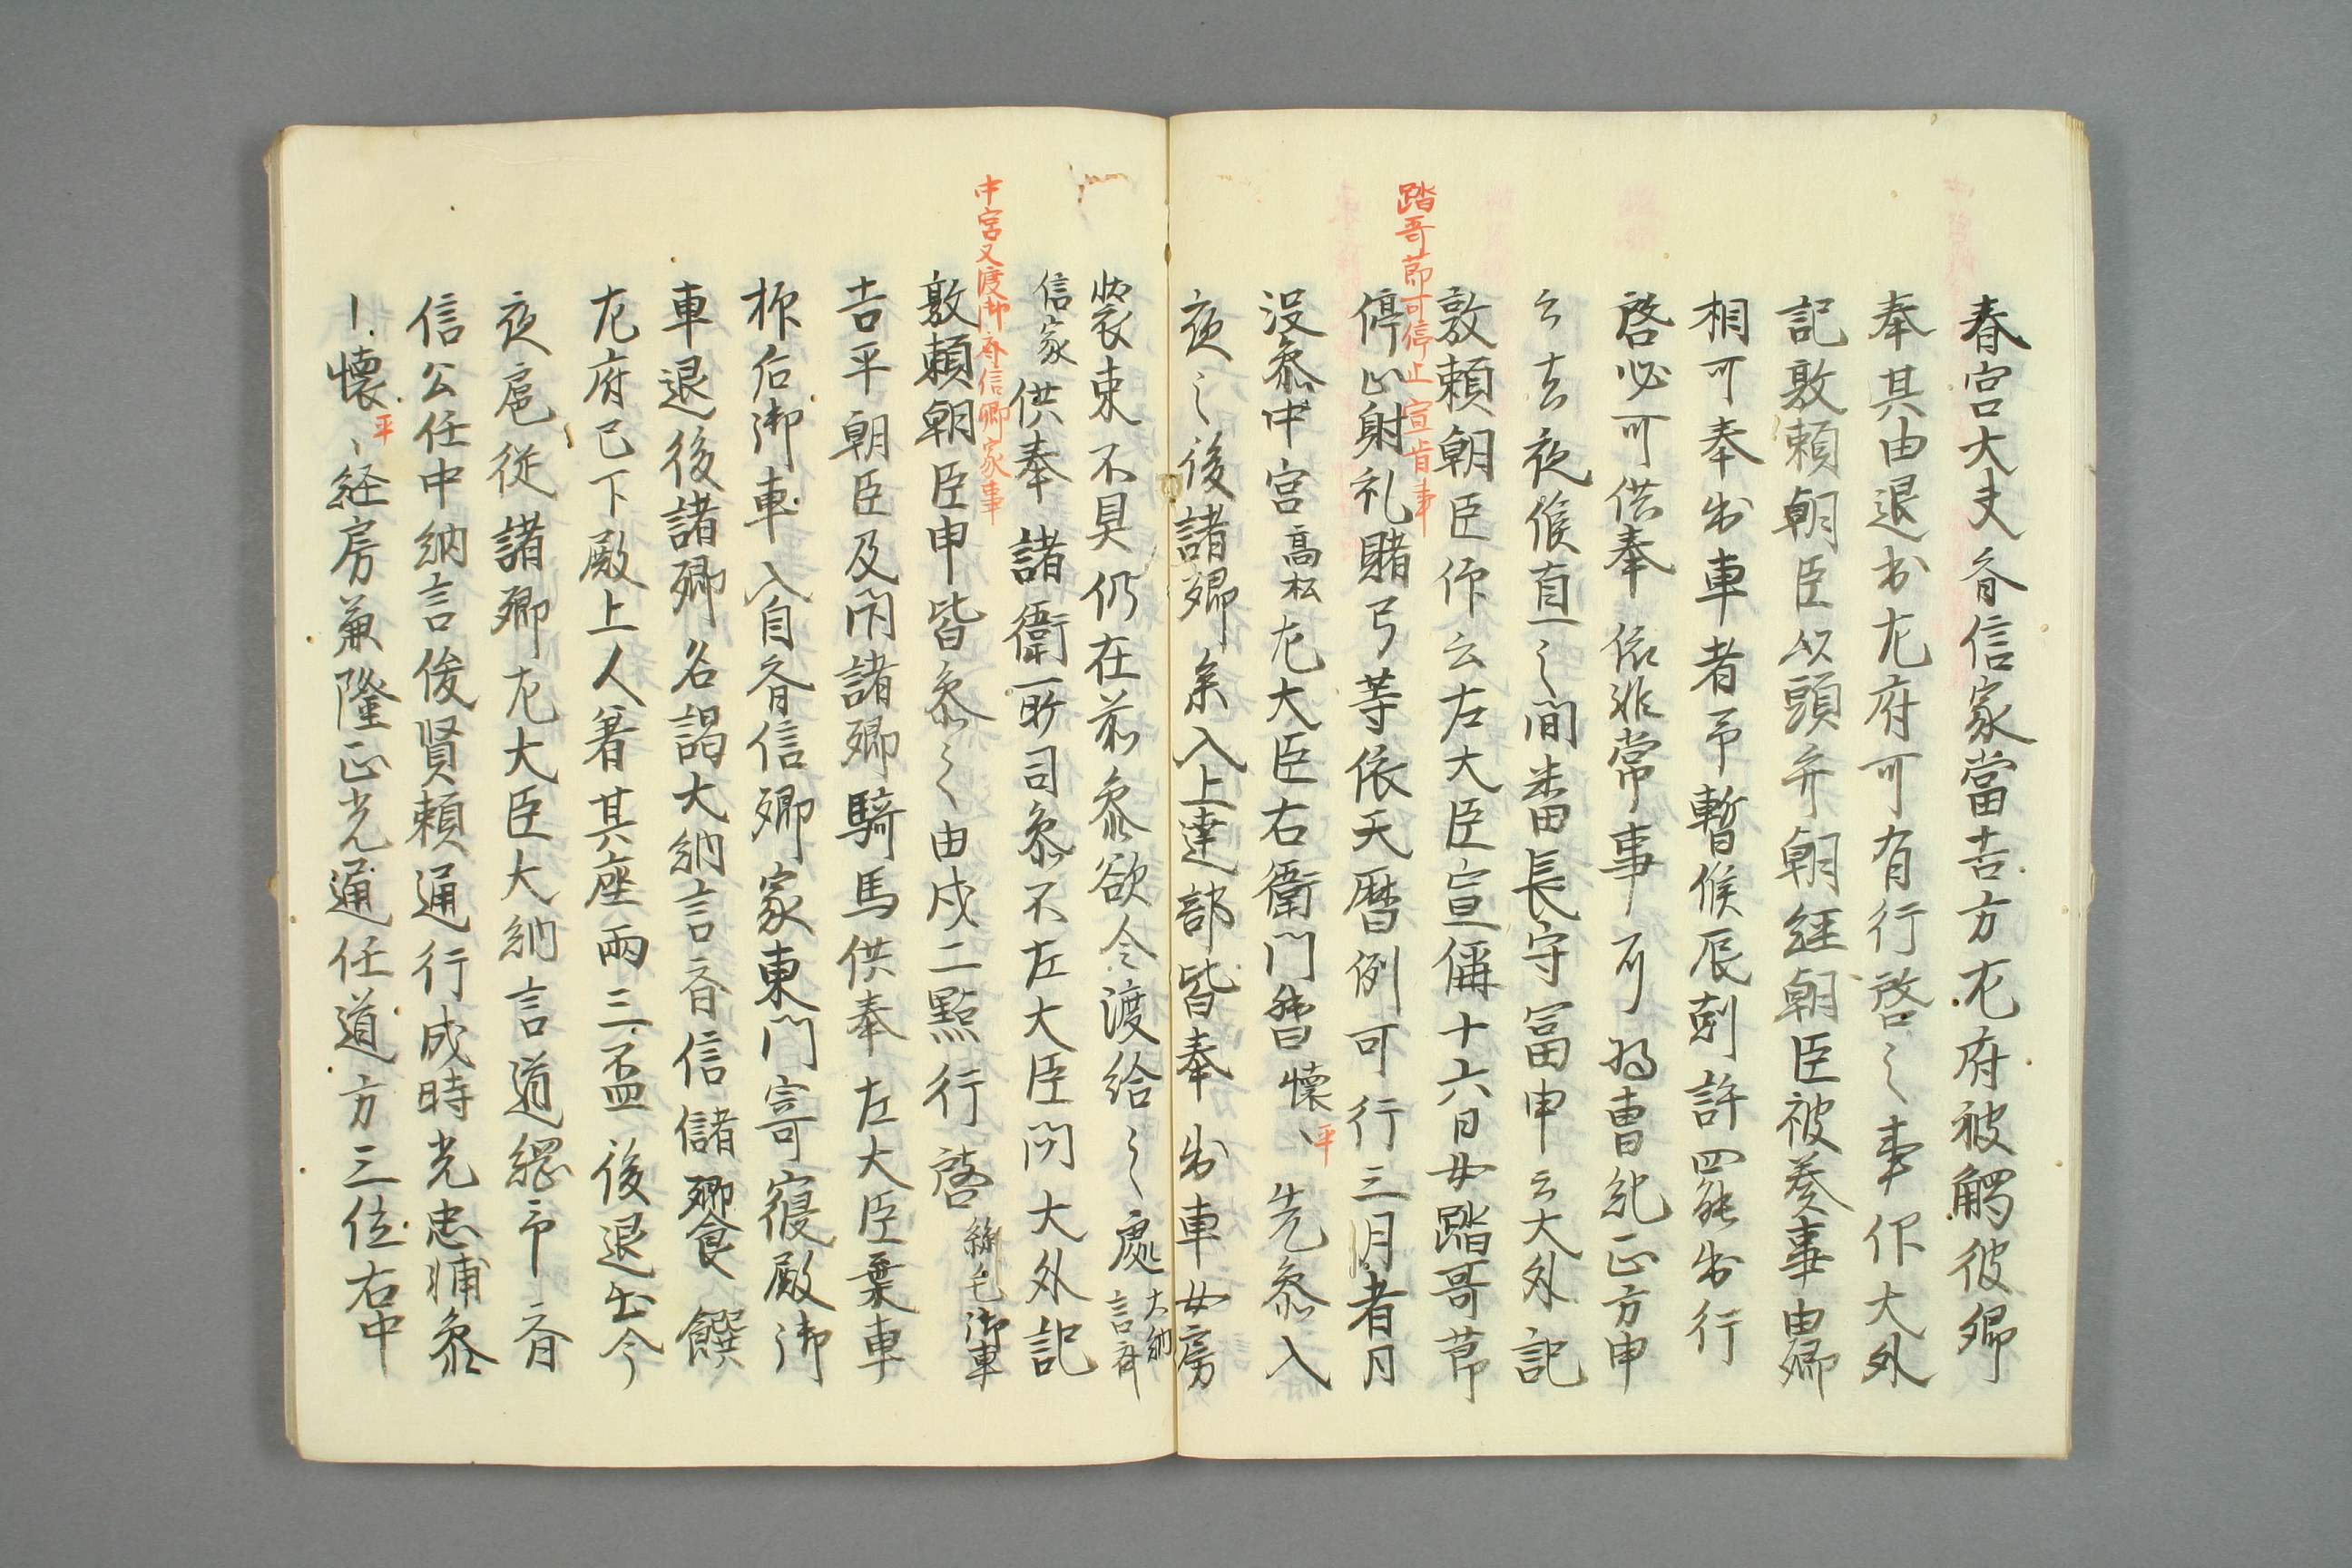 春宮大夫斉信家當吉方左府被觸彼卿
奉其由退出左府可有行啓之事仰大外
記敦頼朝臣以頭弁朝経朝臣被奏事由卿
相可奉出車者予暫候辰剋許罷出行
啓必可供奉依非常事可
云去夜候直之間番長守冨申云大外記
踏哥莭可停止宣旨事
敦頼朝臣仰云左大臣宣偁十六日女踏哥莭
停止射礼賭弓等依天暦例可行三月者月
没参中宮高松左大臣右衛門督懐〻平先参入
夜之後諸卿参入上達部皆奉出車女房
装束不具仍在前参欲令渡給之處大納言斉
信家供奉諸衛所司参不左大臣問大外記
中宮又渡御斉信卿家事
敦頼朝臣申皆参之由戌二點行啓絲毛御車
吉平朝臣及閇諸卿騎馬供奉左大臣乗車
候后御車入自斉信卿家東門寄寝殿御
車退後諸卿名謁大納言斉信儲卿食饌
左府已下殿上人着其座兩三盃後退出今
夜扈従諸卿左大臣大納言道綱予斉
信公任中納言俊賢頼通行成時光忠輔参
l懐〻平経房兼隆正光通任道方三位右中